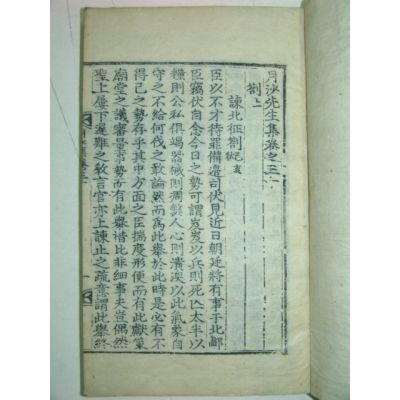 月沙先生集卷之三十一
劄上
諫北征劄 乙亥
臣以不才待罪備邊司伏見近日朝廷將有事于北鄙
臣竊伏自念今日之勢可謂岌岌以兵則死亡太半以
糧則公私俱竭器械則凋弊人心則潰渙以此氣象自
守之不給何伐之敢論然而爲此擧於此時是必有不
得已之勢存乎其中方面之臣揣度形便而有此獻策
廟堂之議審量事勢而有此擧措比非細事夫豈偶然
聖上屢下遲難之敎言官亦上諫止之疏意謂此擧終